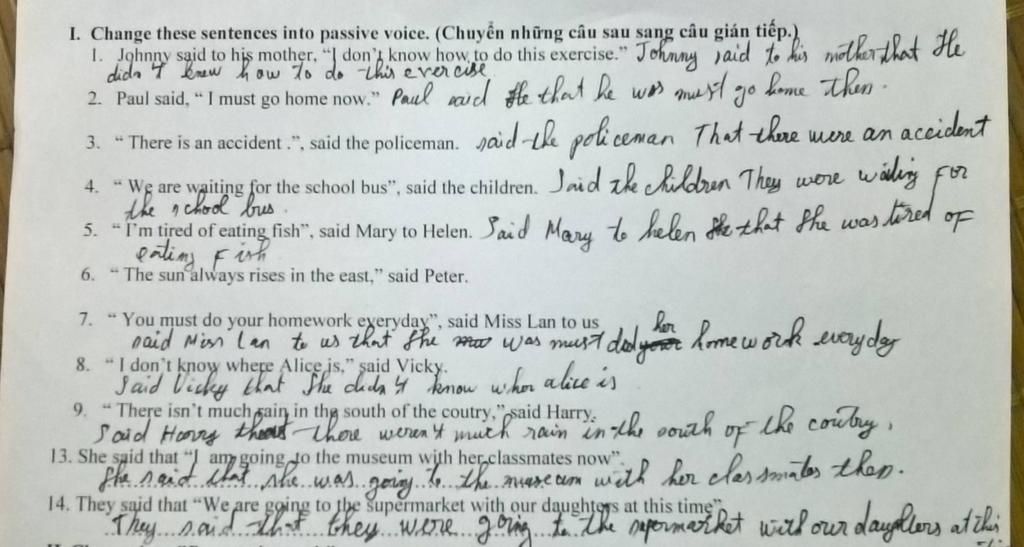 I. Change these sentences into passive voice. (Chuyển những câu sau sang câu gián tiếp.)
1. Johnny said to his mother, “I don't know how to do this exercise.” Johnny said to his mother that He
didn't know how to do this exercise
2. Paul said, “ I must go home now.” Paul said that he was must go home then.
3. “ There is an accident .”, said the policeman. said the policeman That there were an accident
4. “ We are waiting for the school bus”, said the children. Said the children They were waiting for
the school bus.
5. “ I'm tired of eating fish”, said Mary to Helen. Said Mary to helen that She was tired of
eating fish
6. “ The sun always rises in the east,” said Peter.
7. “ You must do your homework everyday”, said Miss Lan to us
said Miss Lan to us that She was must did her homework everyday
8. “ I don't know where Alice is,” said Vicky.
Said Vicky that She didn't know wher alice is
9. “ There isn't much rain in the south of the coutry,” said Harry.
Said Harry there weren't much rain in the south of the coutry.
13. She said that “I am going to the museum with her classmates now”.
She said that she was going to the museum with her classmates then.
14. They said that “We are going to the supermarket with our daughters at this time”
They said that they were going to the supermarket with our daughters at this